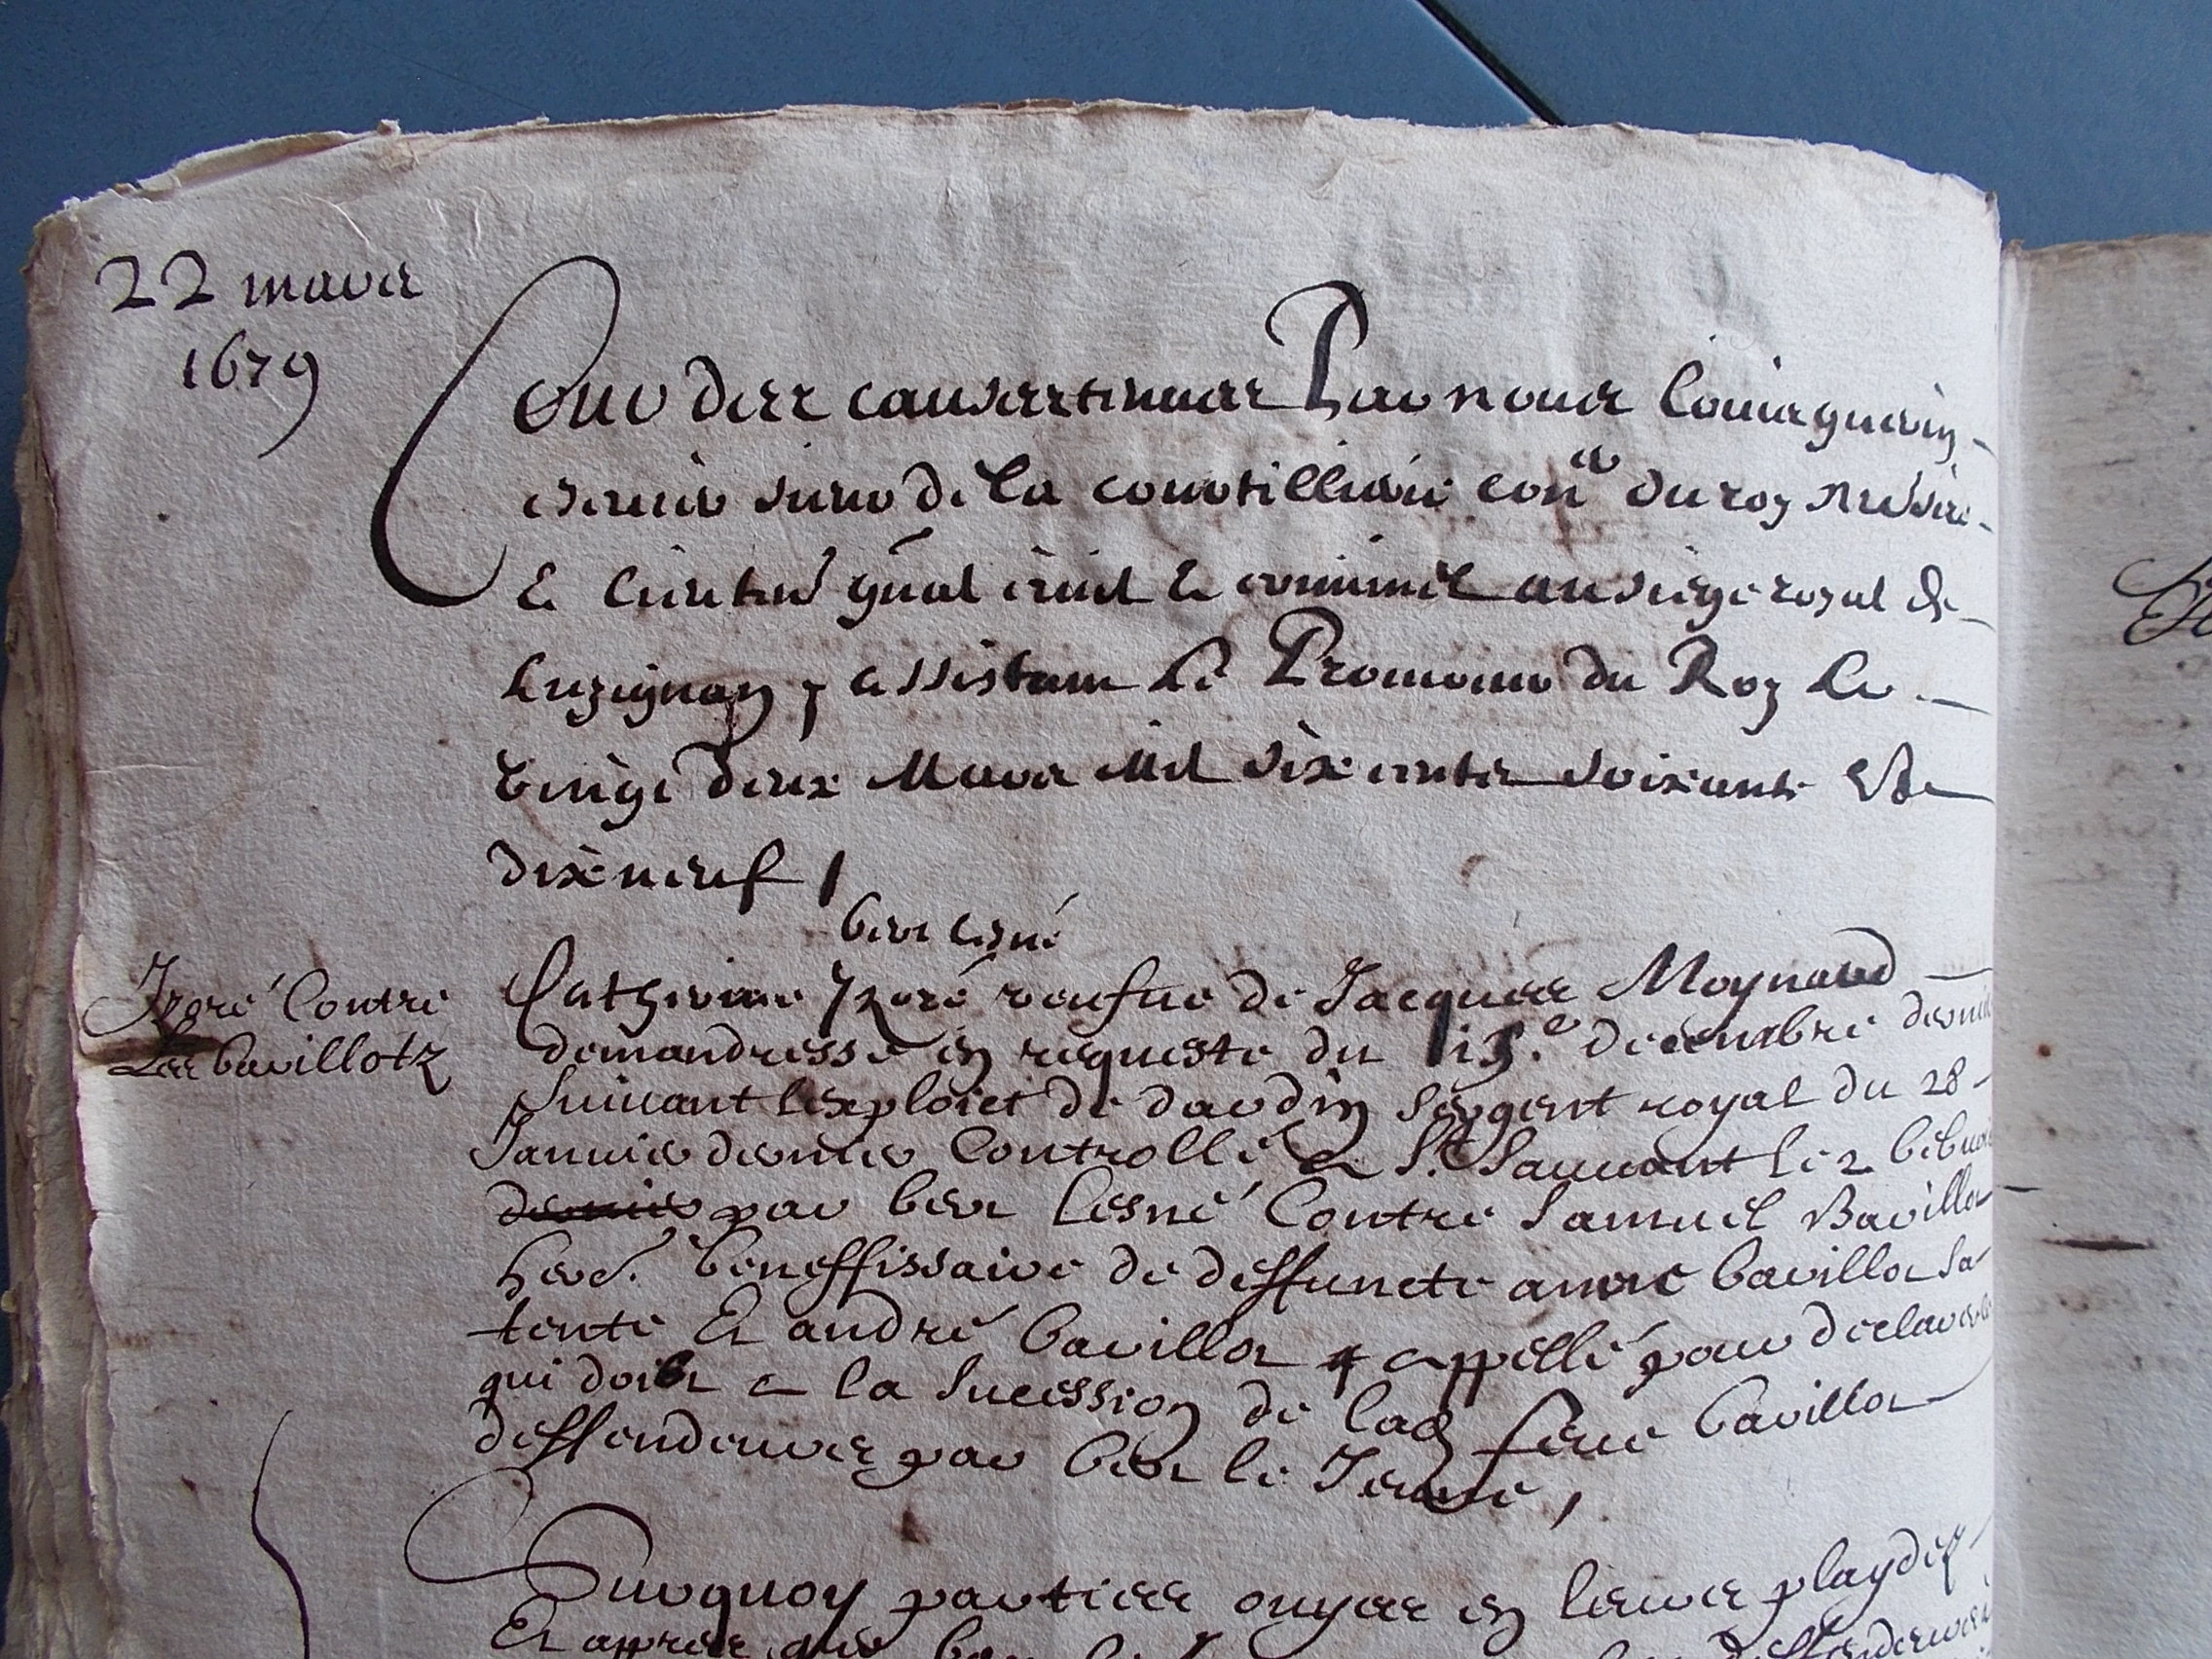 22 mars
1679
Cour des causes tenues Par nous Louis guerin
escuier sieur de La courtilliere con.er du roy n.re sire
& lieuten.t gñal civil & criminel au siege royal de
Luzignan, assistant Le Procureur du Roy Le
vingt deux Mars Mil six cents soixante &
dix neuf /
ber lesné
Izoré Contre
Les bavillotz
Catherine Yzoré veufve de Jacques Moynard
demandresse en requeste du decembre dernier
suivant lexploict de dardin sergent royal du 28
Janvier dernier Controllé a S.t Sauvant le 2 febvrier
dernier par ber Lesné Contre Samuel Bavillot
her. beneffissaire de deffuncte anne bavillot sa
tente Et andré bavillot appellé pour declarer ce
qui doibt a la sucession de lad. feue bavillot
deffendeurs par ber le Jeune,
Surquoy parties ouyes en leurs playdes
Et appres que deffendeurs